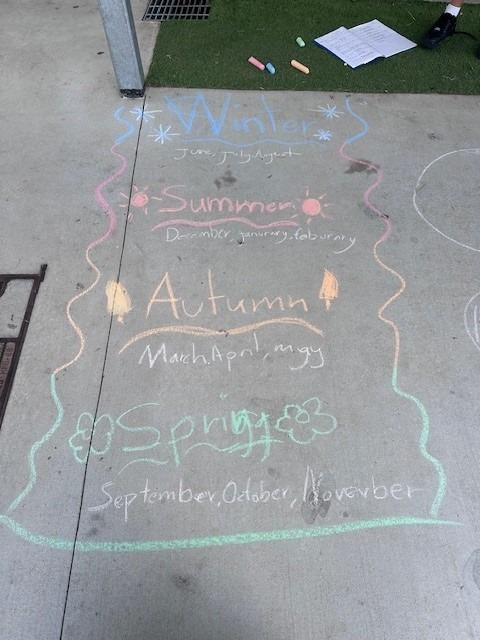 Winter
June, July, August
Summer
December, janurary, feburary
Autumn
March, April, may
Spring
September, October, November